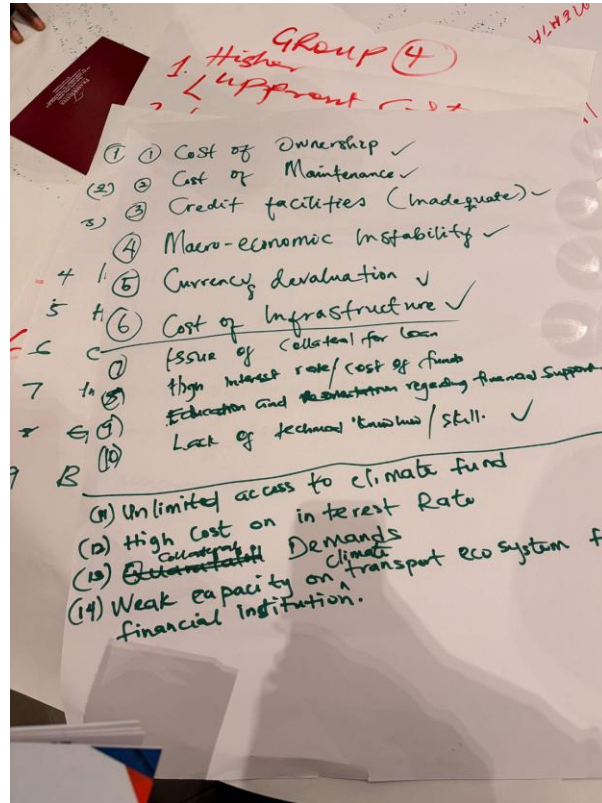 GROUP 4
1. Higher
Upfront Cost
① ① Cost of Ownership ✓
(2) ② Cost of Maintenance ✓
3) ③ Credit facilities (Inadequate) ✓
④ Macro-economic Instability ✓
4 ⑤ Currency devaluation ✓
5 H ⑥ Cost of Infrastructure ✓
6 C ⑦ Issue of Collateral for loan
7 In ⑧ High interest rate/cost of funds
G ⑨ Education and regarding financial support
9 B ⑩ Lack of technical 'know how/skill. ✓
(11) Unlimited access to climate fund
(12) High Cost on interest Rate
(13) Collateral Demands
(14) Weak capacity on climate transport ecosystem f
financial institution.